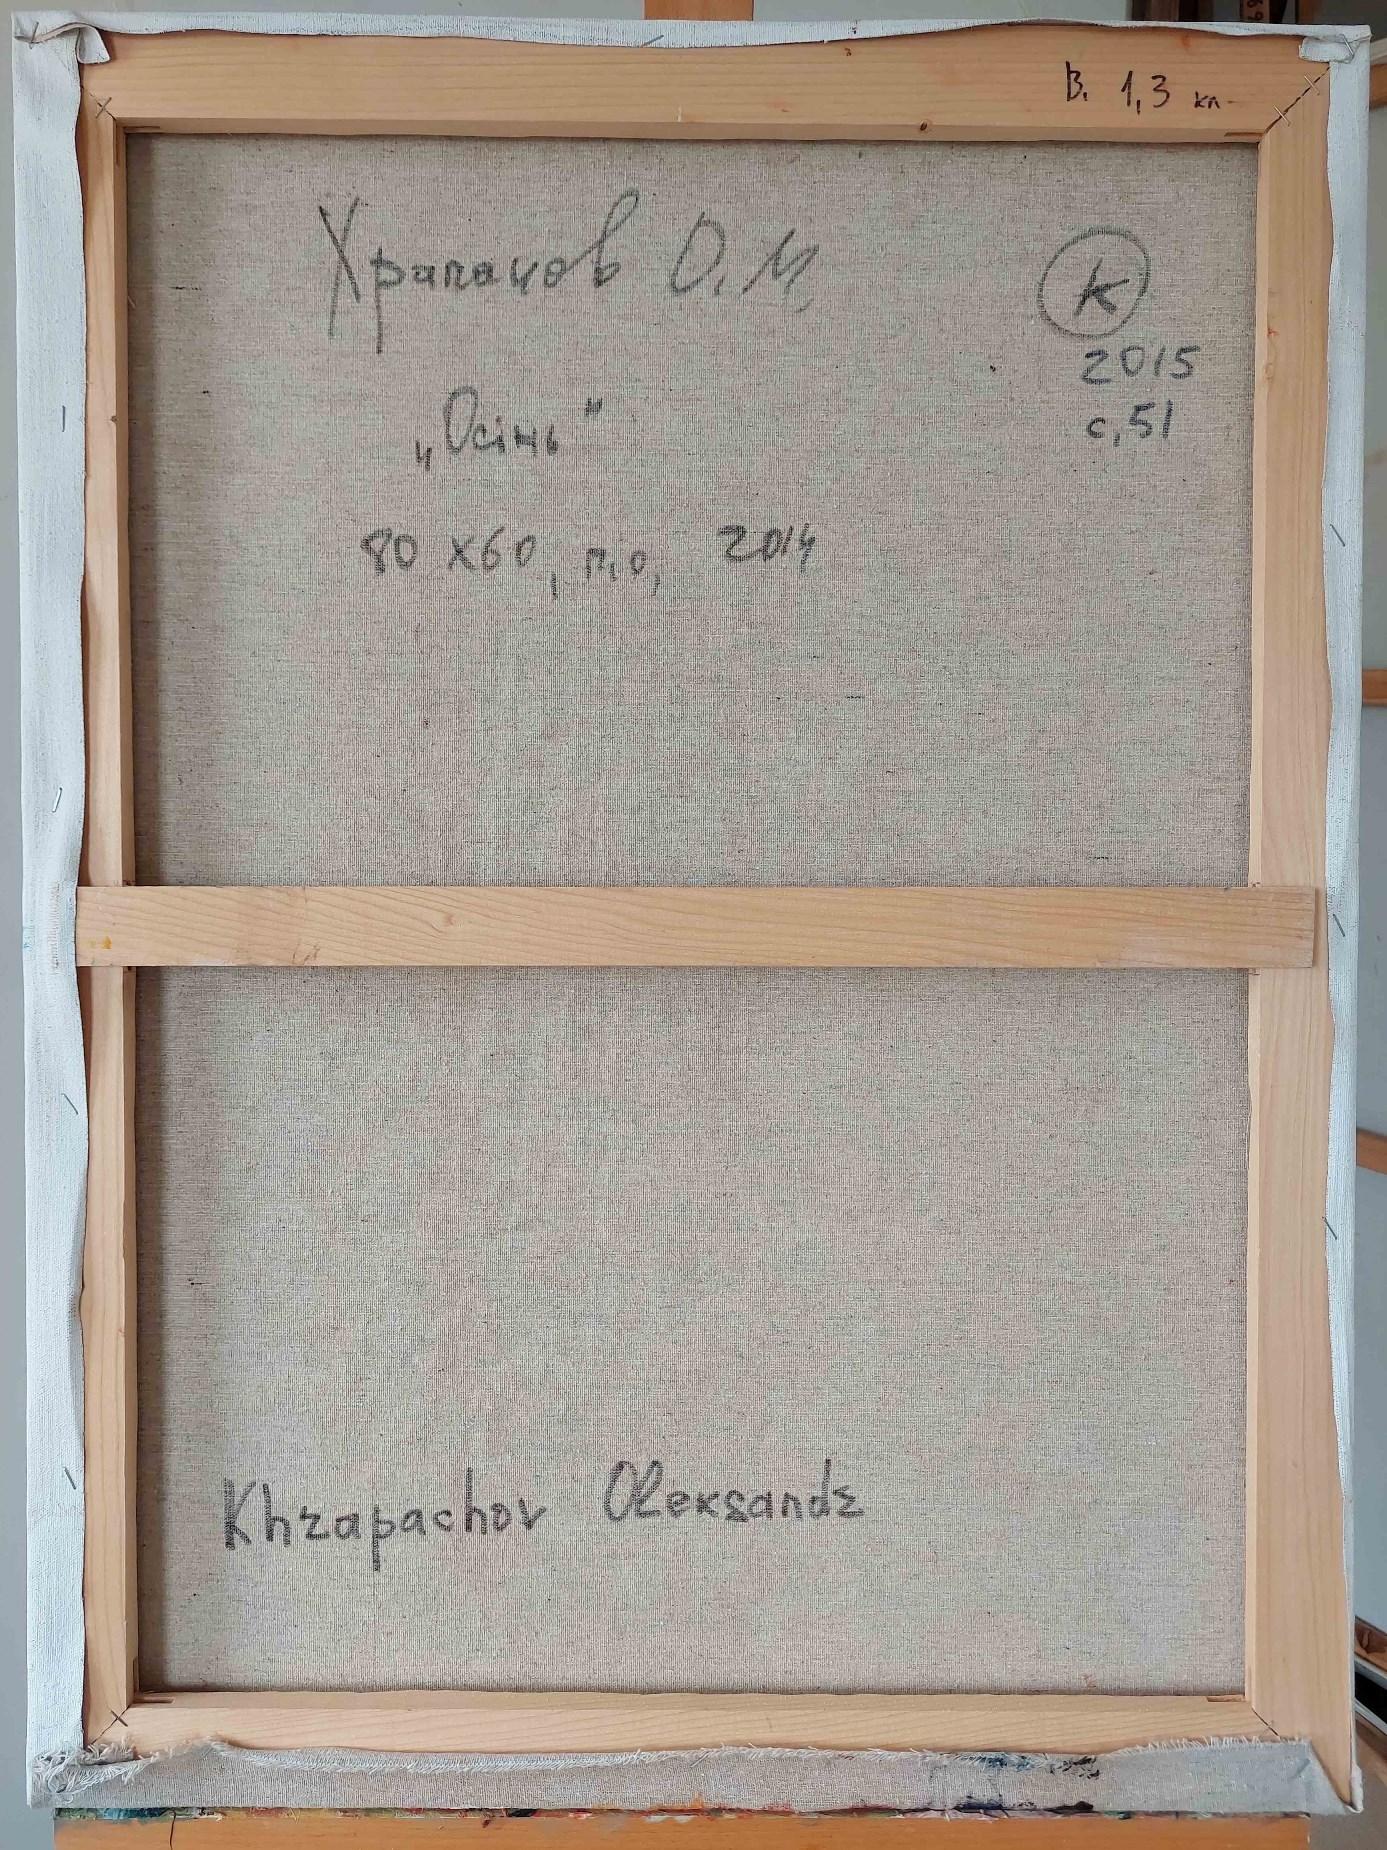 В. 1,3 кл
Храпачов О.М.
К
2015
с. 51
„Осінь"
80 х 60, п.о, 2014
Khrapachov Oleksandr